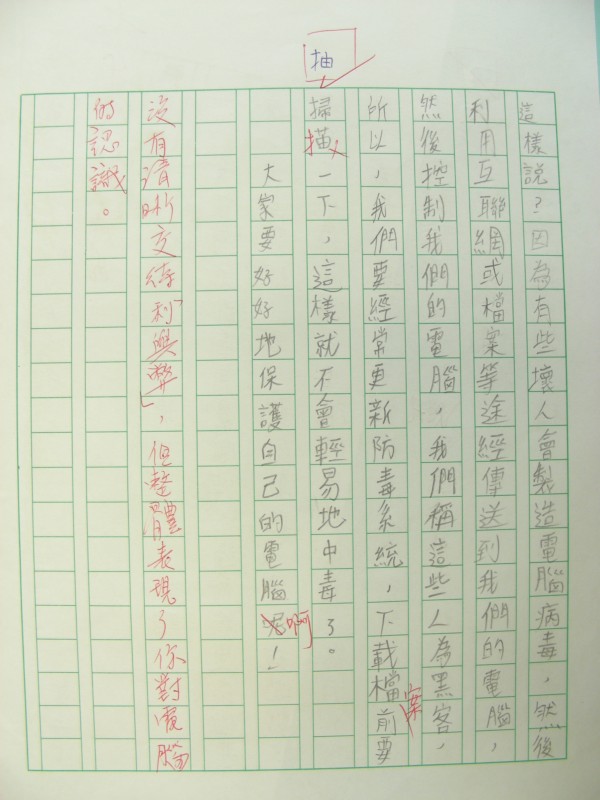 這樣說？因為有些壞人會製造電腦病毒，然後
利用互聯網或檔案等途經傳送到我們的電腦，
然後控制我們的電腦，我們稱這些人為黑客，
所以，我們要經常更新防毒系統，下載檔案前要
抽
掃描一下，這樣就不會輕易地中毒了。
大家要好好地保護自己的電腦啊！
沒有清晰交待「利與弊」，但整體表現了你對電腦
的認識。